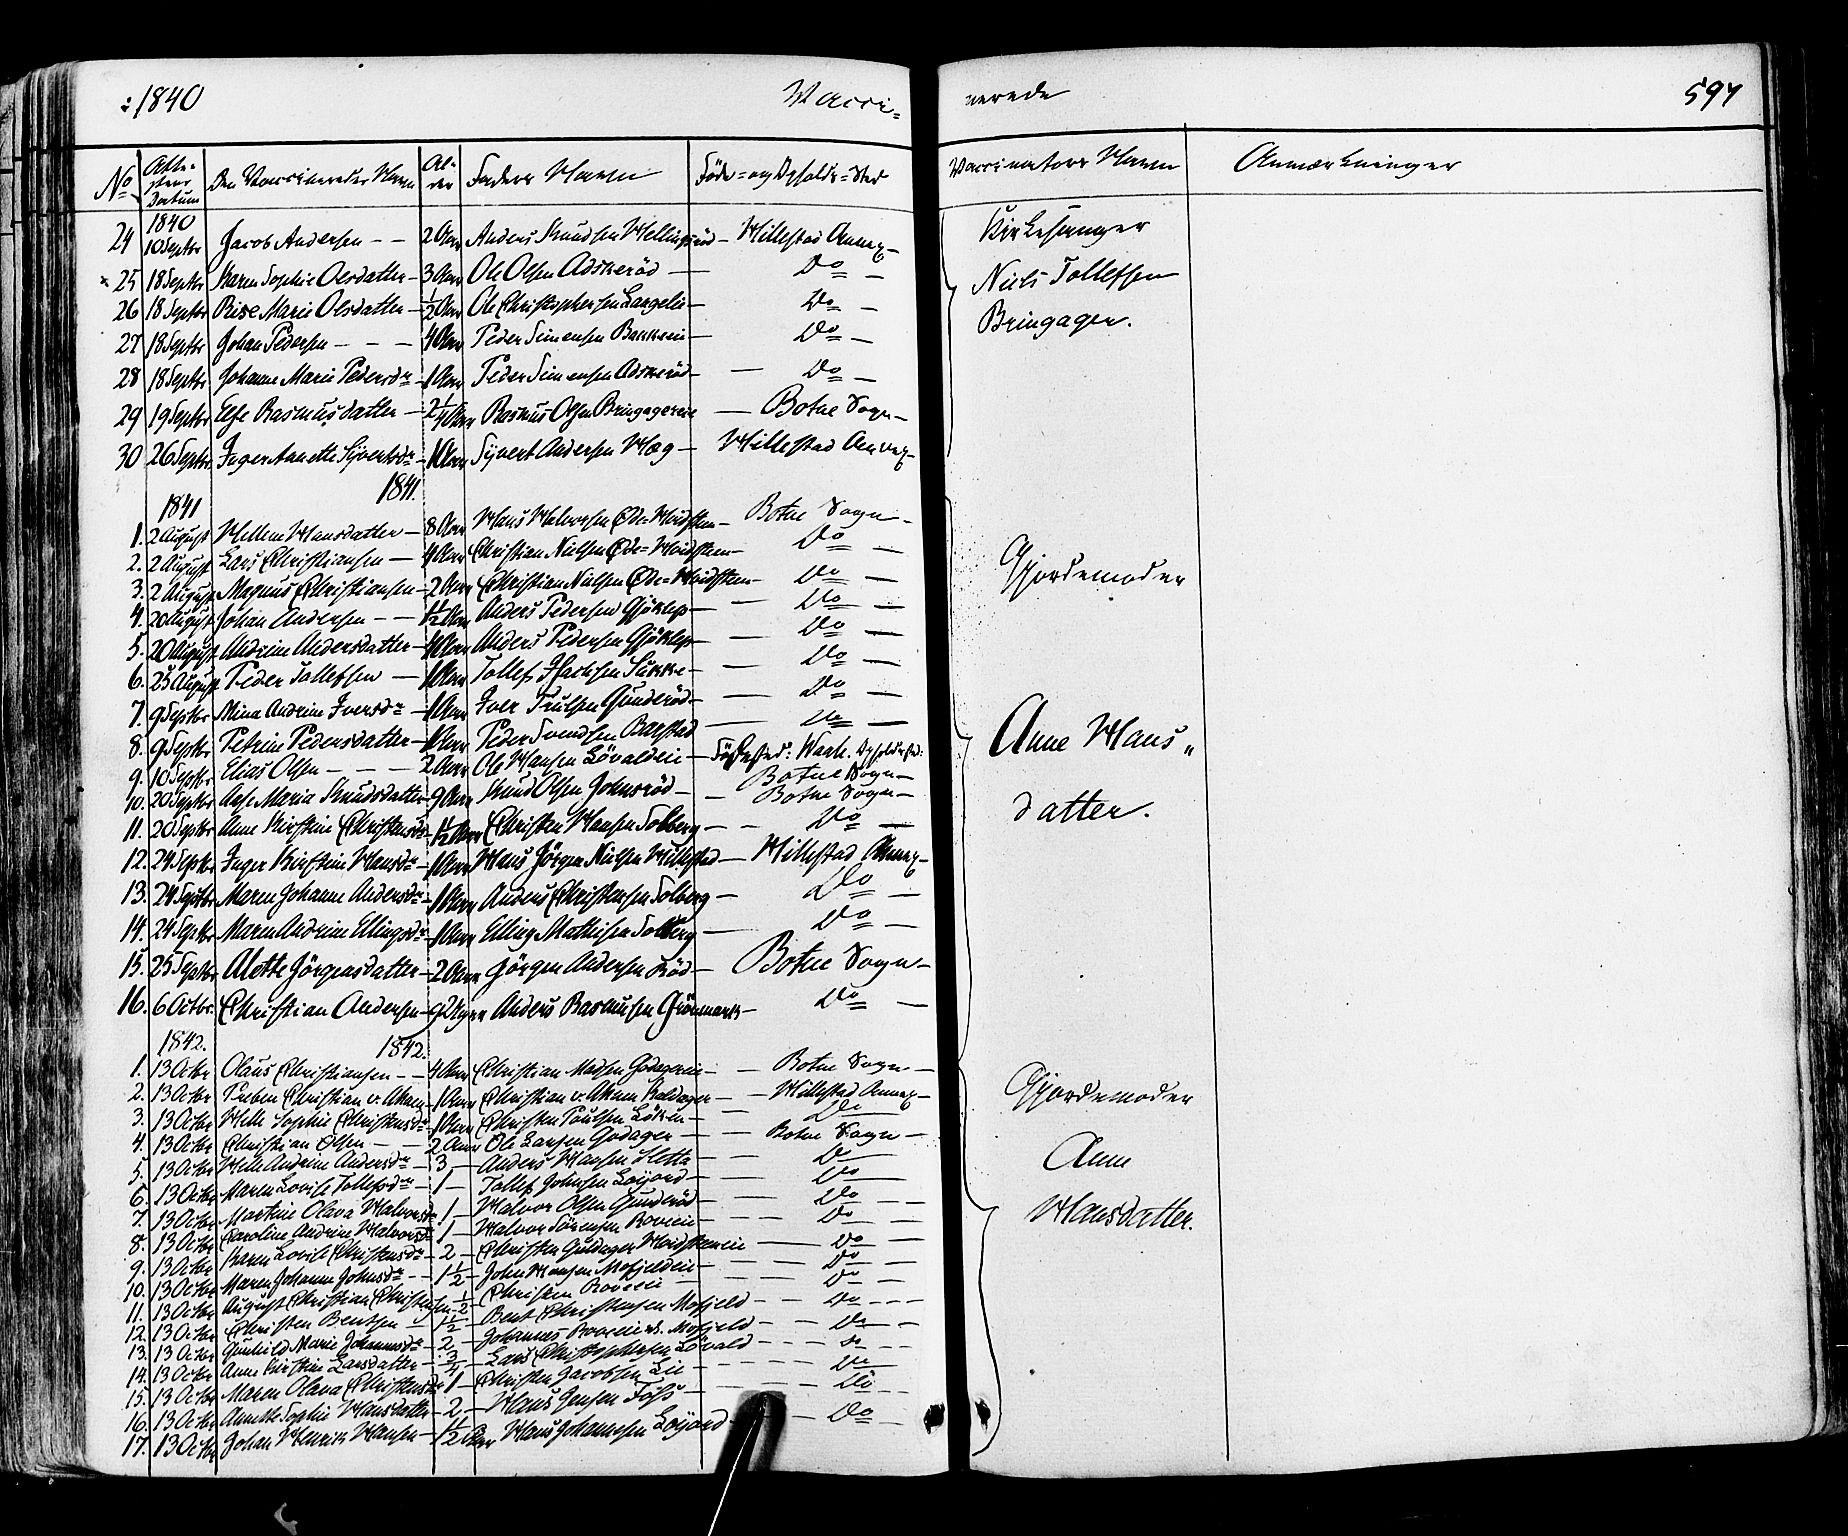 ÷ 1840 Vacci=
nerede 597
No Atte-stens Datum Den Vaccineredes Navn Al-der Faders Navn Føde= og Opholds=Sted Vaccinators Navn Anmærkninger
1840
24 10 Septbr Jacob Andersen - - 2 Aar Anders Knudsen Hellingsröd - Hillestad Annex -
25 18 Septbr Karen Sophie Olsdatter - 3 Aar Ole Olsen Adskeröd - Do -
26 18 Septbr Marie Olsdatter - 1/2 Aar Ole Christophersen Langelie - Do -
27 18 Septbr Johan Pedersen - - - 4 Aar Peder Simensen Bakkeeie - Do -
28 18 Septbr Johanne Marie Pedersdr - 1 Aar Peder Simensen Adskeröd - - Do -
29 19 Septbr Else Rasmusdatter - 2 1/4 Aar Rasmus Olsen Bringagereie - Botne Sogn -
30 26 Septbr Inger Annette Syvertsdr - 1 Aar Syvert Andersen Hæg - Hillestad Annex -
Kirkesanger
Niels Tollefsen
Bringager.
1841.
1841
1. 2 August Hellene Hansdatter - 8 Aar Hans Halvorsen Øde=Hvidsteen - Botne Sogn -
2. 2 August Lars Christiansen - 4 Aar Christian Nielsen Øde=Hvidsteen - Do -
3. 2 August Magnus Christiansen - 2 Aar Christian Nielsen Øde=Hvidsteen - Do -
4. 20 August Johan Andersen - - 1 1/2 Aar Anders Pedersen Gjöklep - - Do -
5. 20 August Andrine Andersdatter - 4 Aar Anders Pedersen Gjöklep - - Do -
6. 25 August Peder Tollefsen - 1 Aar Tollef Isachsen Sukke - - Do -
7. 9 Septbr Mina Andrine Iversdr - 1 Aar Iver Trulsen Gunderöd - - Do -
8. 9 Septbr Petrine Pedersdatter - 1 Aar Peder Svendsen Barstad - Do -
9. 10 Septbr Elias Olsen - - - 2 Aar Ole Hansen Lövaldeie - Födested: Opholdssted: Botne Sogn -
10. 20 Septbr Maria Knudsdatter - 9 Aar Knud Olsen Johnsröd - - Botne Sogn -
11. 20 Septbr Anne Kirstine Christensdr - 1 1/2 Aar Christen Hansen Solberg - - Do -
12. 24 Septbr Inger Kirstine Hansdr - 1 Aar Hans Jörgen Nielsen Hillestad - Hillestad Annex -
13. 24 Septbr Maren Johanne Andersdr - 1 Aar Anders Christensen Solberg - Do -
14. 24 Septbr Maren Andrine Ellingsdr - 1 Aar Elling Mathisen Solberg - Do -
15. 25 Septbr Alette Jörgensdatter - 2 Aar Jörgen Andersen Röd - Botne Sogn -
16. 6 Octbr Christian Andersen - 9 Anders Rasmusen Grönmark - Do -
Gjordemoder
Anne Hans„
datter.
1842. 1842.
1. 13 Octbr Olaus Christiansen - - 4 Aar Christian Madsen Godagereie - - Botne Sogn -
2. 13 Octbr Preben Christian v. Aken - 1 Aar Christian v. Aken Kaldager - - Hillestad Annex -
3. 13 Octbr Helle Sophie Christensdr - 1 Aar Christen Poulsen Löken - - Do
4. 13 Octbr Christian Olsen - - 2 Aar Ole Larsen Godager - - Botne Sogn -
5. 13 Octbr Helle Andrine Andersdr - 3 - Anders Hansen Sletta - - Do
6. 13 Octbr Maren Lovise Tollefsdr - 1 - Tollef Johnsen Löijord - - Do
7. 13 Octbr Martine Olava Halvorsdr 1 - Halvor Olsen Gunderöd - - Do -
8. 13 Octbr Caroline Andrine Halvorsdr 1 - Halvor Sörensen Roveeie - - Do -
9. 13 Octbr Karen Lovise Christensdr - 2 - Christen Guldager Hvidsteneie - - Do -
10. 13 Octbr Maren Johanne Johnsdr - - 1 1/2 - John Hansen Mofjeldeie - - Do -
11. 13 Octbr August Christian Christensen - 1/2 - Christen Roveeie - Do -
12. 13 Octbr Christen Bentsen - 1 1/2 - Bent Christensen Mofjeld - - Do - - -
13. 13 Octbr Gunhild Marie Johannesdr - 2 - Johannes Roveeie Mofjeld - - Do - -
14. 13 Octbr Anne Kirstine Larsdatter - 3/4 - Lars Christophersen Lövald - - - do - -
15. 13 Octbr Maren Olava Christensdr - 1 - Christen Jacobsen Lie - - - - Do
16. 13 Octbr Annette Sophie Hansdatter - 2 - Hans Jensen Foss - - - - Do - -
17. 13 Octbr Johan Henrik Hansen - 1 1/2 Aar Hans Johannesen Löijord - - - Do -
Gjordemoder
Anne
Hansdatter.